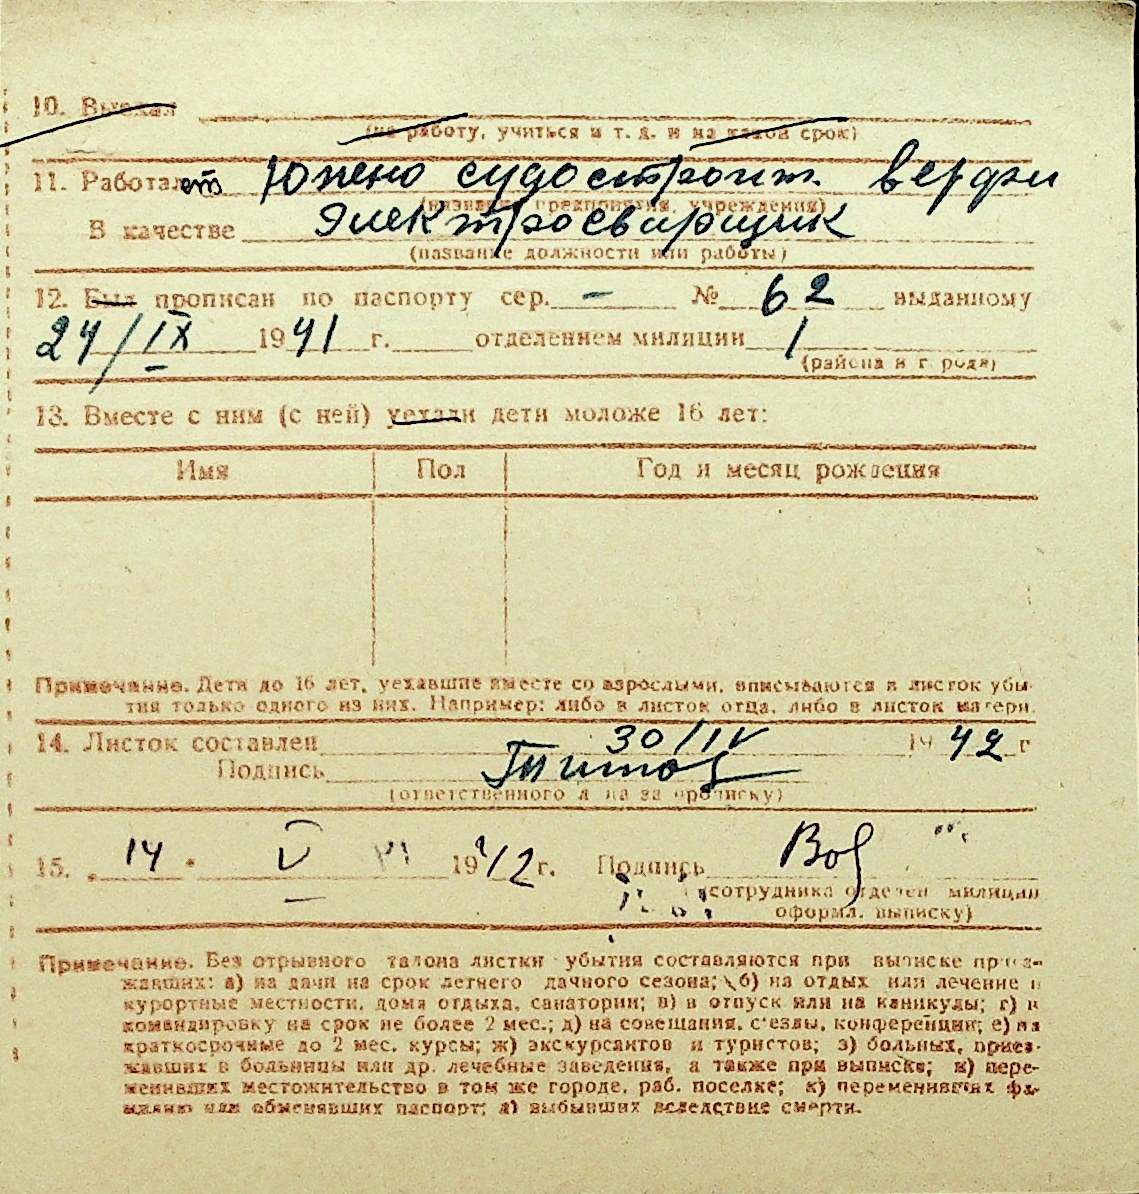 10. Выехал
(на работу, учиться и т. д. и на какой срок)
11. Работает Южено судостроит. верфи
(название предприятия, учреждения)
В качестве электросварщик
(название должности или работы)
12. Был прописан по паспорту сер. – № 62 выданному
24/IX 1941 г. отделением милиции 1
(района и г. рода)
13. Вместе с ним (с ней) уехали дети моложе 16 лет:
Имя Пол Год и месяц рождения
Примечание. Дети до 16 лет, уехавшие вместе со взрослыми, вписываются в листок убы-
тия только одного из них. Например: либо в листок отца, либо в листок матери.
14. Листок составлен 30/IV 1942 г
Подпись Титов
(ответственного лица за прописку)
15. 14 V 1942 г. Подпись
(сотрудника отделен милиции
оформл. выписку)
Примечание. Без отрывного талона листки убытия составляются при выписке приез-
жавших: а) на дачи на срок летнего дачного сезона; б) на отдых или лечение в
курортные местности, дома отдыха, санатории; в) в отпуск или на каникулы; г) в
командировку на срок не более 2 мес.; д) на совещания, с'езды, конференции; е) на
краткосрочные до 2 мес. курсы; ж) экскурсантов и туристов; з) больных, приез-
жавших в больницы или др. лечебные заведения, а также при выписке; и) пере-
менивших местожительство в том же городе, раб. поселке; к) переменивших фа-
милию или обменявших паспорт; л) выбывших вследствие смерти.